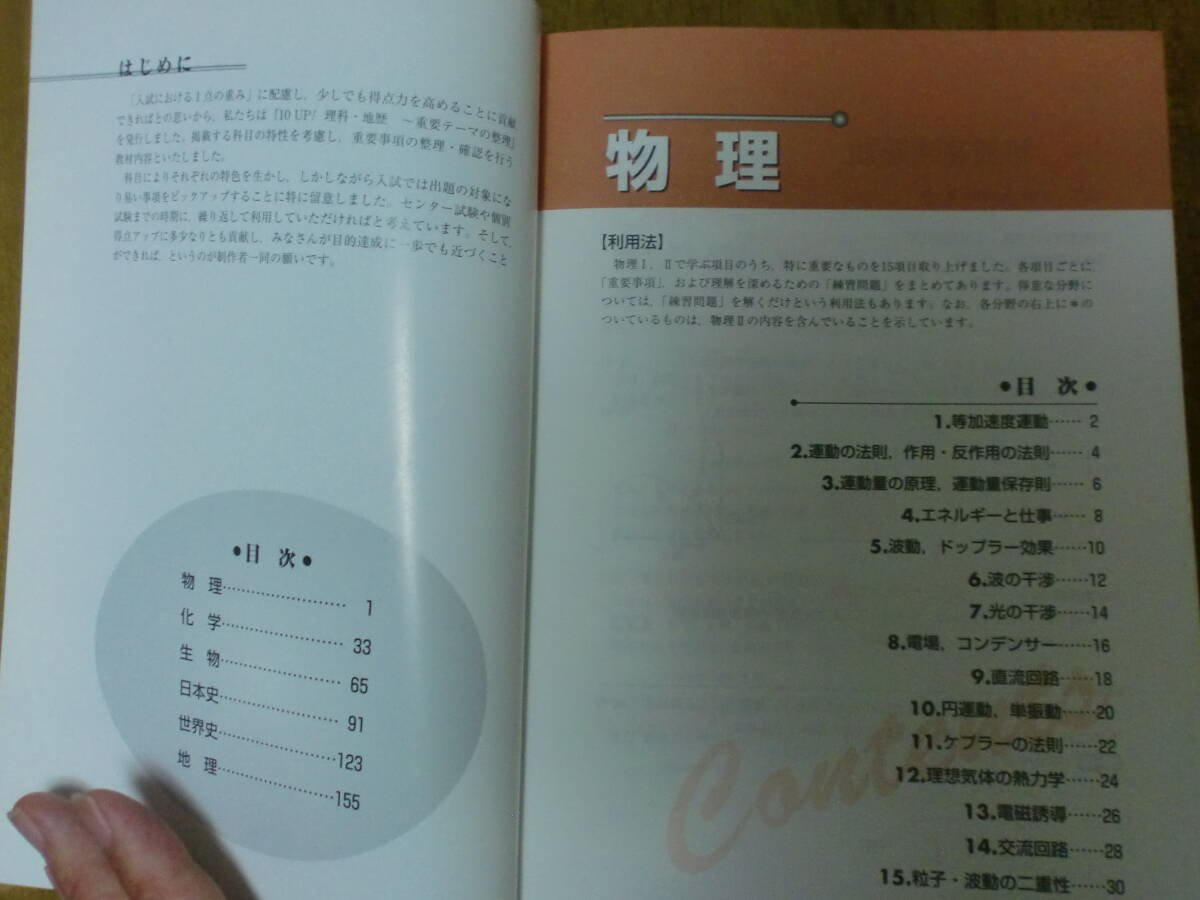 はじめに
「入試における1点の重み」に配慮し、少しでも得点力を高めることに貢献
できればとの思いから、私たちは『10 UP! 理科・地歴 〜重要テーマの整理』
を発行しました。掲載する科目の特性を考慮し、重要事項の整理・確認を行う
教材内容といたしました。
科目によりそれぞれの特色を生かし、しかしながら入試では出題の対象にな
り易い事項をピックアップすることに特に留意しました。センター試験や個別
試験までの時期に、繰り返して利用していただければと考えています。そして、
得点アップに多少なりとも貢献し、みなさんが目的達成に一歩でも近づくこと
ができれば、というのが制作者一同の願いです。
●目 次●
物 理…………………… 1
化 学…………………… 33
生 物…………………… 65
日本史…………………… 91
世界史……………………123
地 理……………………155
物 理
【利用法】
物理Ⅰ、Ⅱで学ぶ項目のうち、特に重要なものを15項目取り上げました。各項目ごとに、
「重要事項」、および理解を深めるための「練習問題」をまとめてあります。得意な分野に
ついては、「練習問題」を解くだけという利用法もあります。なお、各分野の右上に＊の
ついているものは、物理Ⅱの内容を含んでいることを示しています。
●目 次●
1.等加速度運動…… 2
2.運動の法則、作用・反作用の法則…… 4
3.運動量の原理、運動量保存則…… 6
4.エネルギーと仕事…… 8
5.波動、ドップラー効果……10
6.波の干渉……12
7.光の干渉……14
8.電場、コンデンサー……16
9.直流回路……18
10.円運動、単振動……20
11.ケプラーの法則……22
12.理想気体の熱力学……24
13.電磁誘導……26
14.交流回路……28
15.粒子・波動の二重性……30
Contents